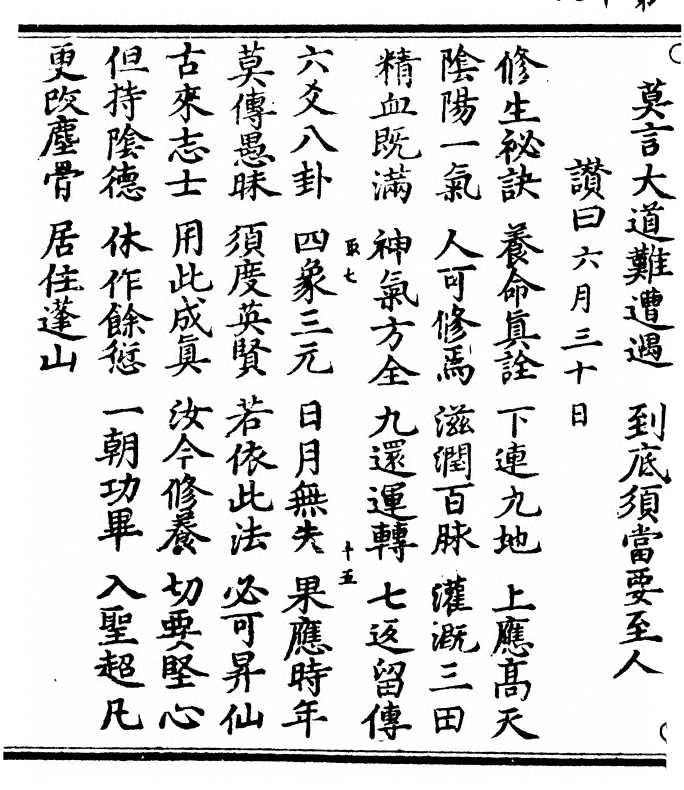 莫言大道難遭遇 到底須當要至人
讃曰六月三十日
修生祕訣 養命眞詮 下連九地 上應髙天
陰陽一氣 人可修焉 滋潤百脉 灌漑三田
精血既滿 神氣方全 九還運轉 七返留傳
取七 十五
六爻八卦 四象三元 日月無失 果應時年
莫傳愚昧 須度英賢 若依此法 必可昇仙
古來志士 用此成眞 汝今修養 切要堅心
但持陰德 休作餘愆 一朝功畢 入聖超凡
更改塵骨 居住蓬山